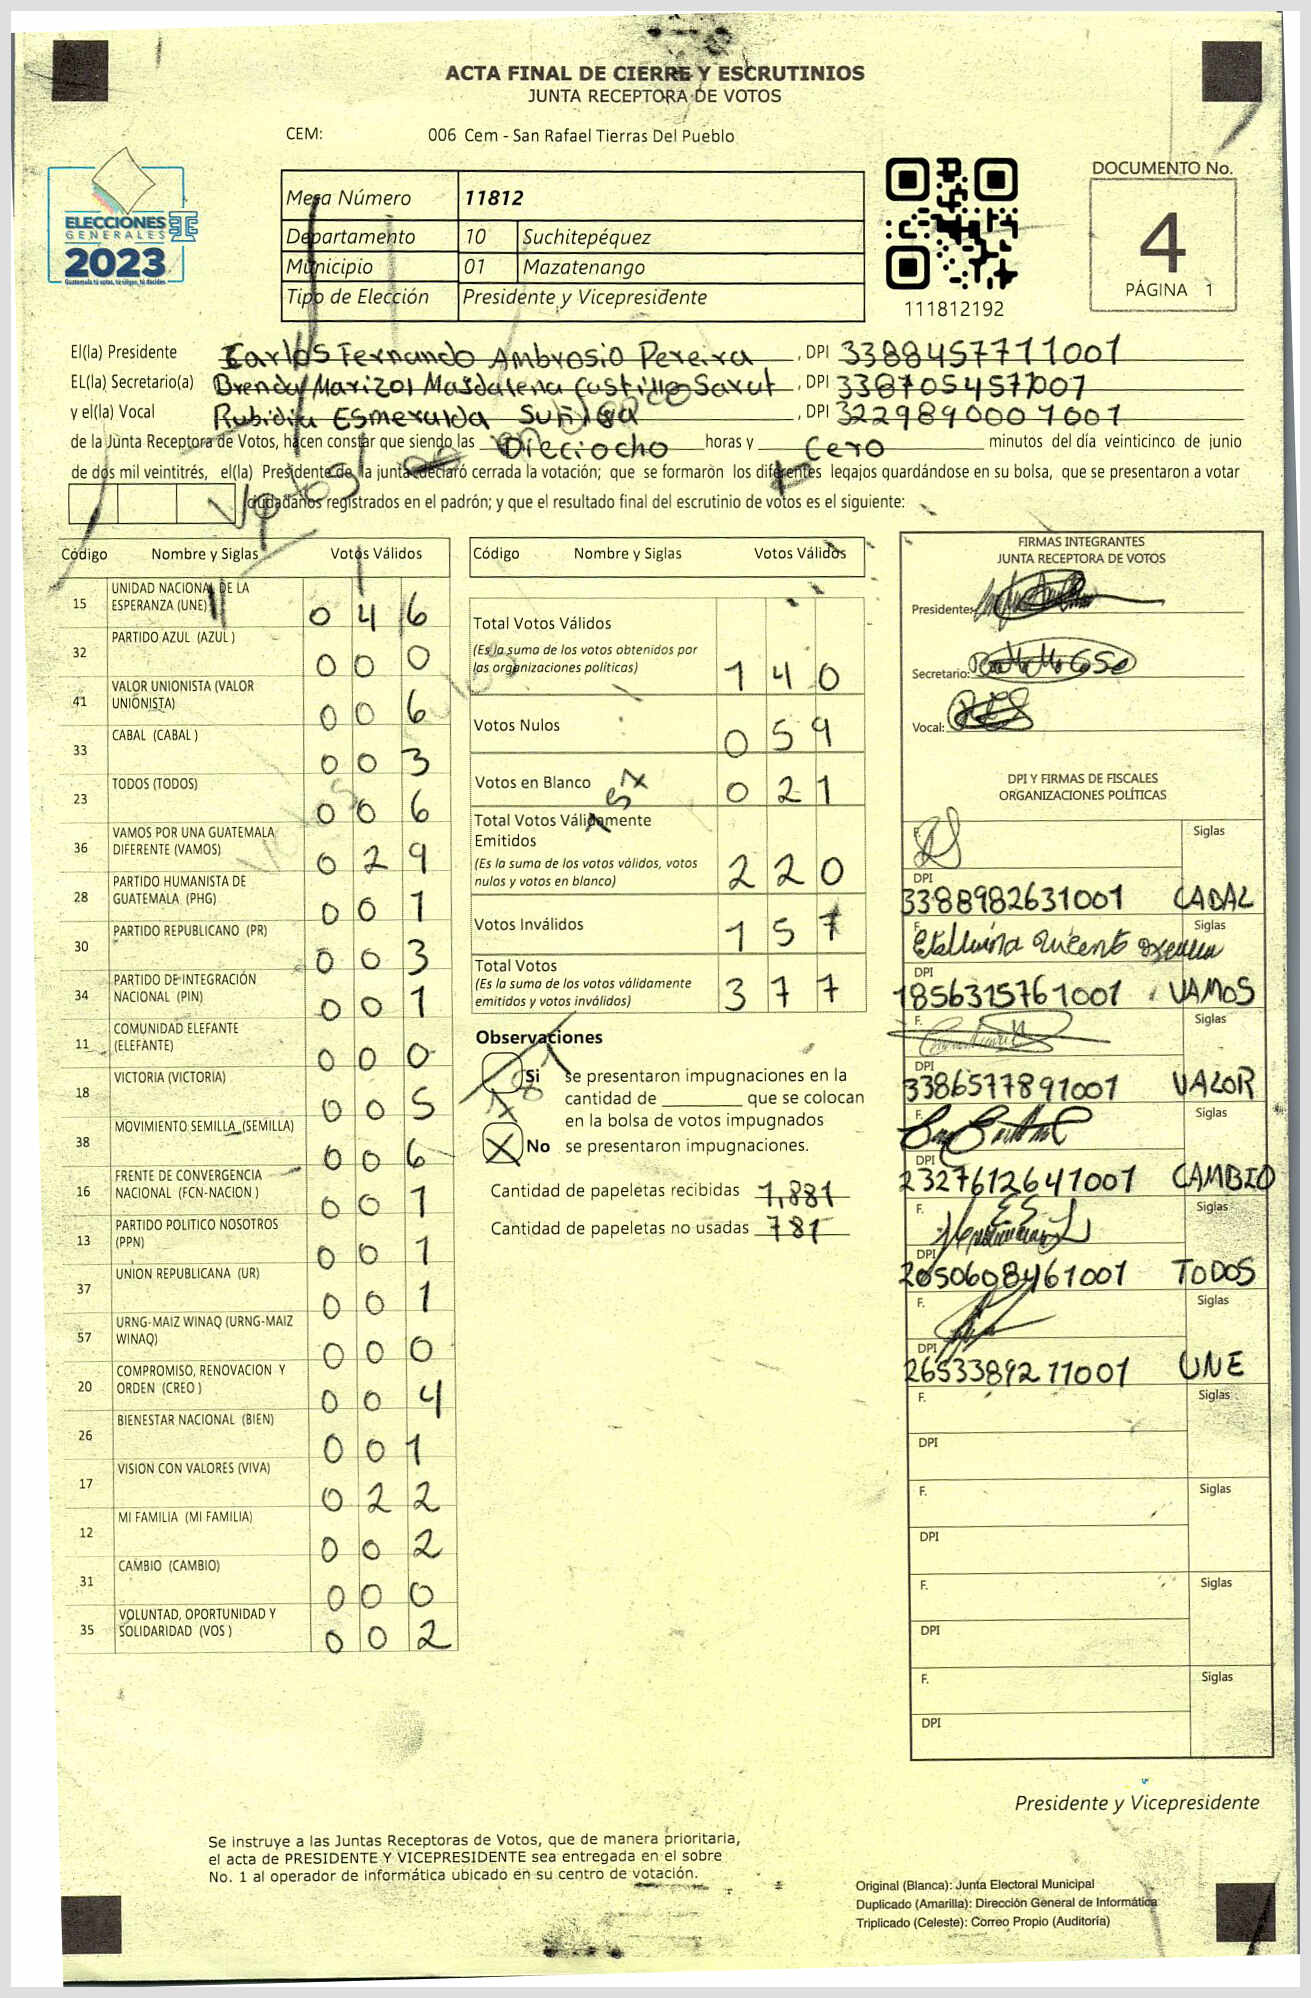 ACTA FINAL DE CIERRE Y ESCRUTINIOS
JUNTA RECEPTORA DE VOTOS
CEM: 006 Cem - San Rafael Tierras Del Pueblo
ELECCIONES
GENERALES
2023
Guatemala tú votas, tú eliges, tú decides
Mesa Número 11812
Departamento 10 Suchitepéquez
Municipio 01 Mazatenango
Tipo de Elección Presidente y Vicepresidente
111812192
DOCUMENTO No.
4
PÁGINA 1
El(la) Presidente Carlos Fernando Ambrosio Pereira , DPI 3388457711001
EL(la) Secretario(a) Brenda Marizol Magdalena Castillo Sarut , DPI 3387054571007
y el(la) Vocal Rubidia Esmeralda , DPI 3229890001001
de la Junta Receptora de Votos, hacen constar que siendo las Dieciocho horas y Cero minutos del día veinticinco de junio
de dos mil veintitrés, el(la) Presidente de la junta declaró cerrada la votación; que se formaron los diferentes legajos guardándose en su bolsa, que se presentaron a votar
ciudadanos registrados en el padrón; y que el resultado final del escrutinio de votos es el siguiente:
Código Nombre y Siglas Votos Válidos
15 UNIDAD NACIONAL DE LA ESPERANZA (UNE) 0 4 6
32 PARTIDO AZUL (AZUL ) 0 0 0
41 VALOR UNIONISTA (VALOR UNIONISTA) 0 0 6
33 CABAL (CABAL ) 0 0 3
23 TODOS (TODOS) 0 0 6
36 VAMOS POR UNA GUATEMALA DIFERENTE (VAMOS) 0 2 9
28 PARTIDO HUMANISTA DE GUATEMALA (PHG) 0 0 1
30 PARTIDO REPUBLICANO (PR) 0 0 3
34 PARTIDO DE INTEGRACIÓN NACIONAL (PIN) 0 0 1
11 COMUNIDAD ELEFANTE (ELEFANTE) 0 0 0
18 VICTORIA (VICTORIA) 0 0 5
38 MOVIMIENTO SEMILLA (SEMILLA) 0 0 6
16 FRENTE DE CONVERGENCIA NACIONAL (FCN-NACION ) 0 0 1
13 PARTIDO POLITICO NOSOTROS (PPN) 0 0 1
37 UNION REPUBLICANA (UR) 0 0 1
57 URNG-MAIZ WINAQ (URNG-MAIZ WINAQ) 0 0 0
20 COMPROMISO, RENOVACION Y ORDEN (CREO ) 0 0 4
26 BIENESTAR NACIONAL (BIEN) 0 0 1
17 VISION CON VALORES (VIVA) 0 2 2
12 MI FAMILIA (MI FAMILIA) 0 0 2
31 CAMBIO (CAMBIO) 0 0 0
35 VOLUNTAD, OPORTUNIDAD Y SOLIDARIDAD (VOS ) 0 0 2
Código Nombre y Siglas Votos Válidos
Total Votos Válidos
(Es la suma de los votos obtenidos por
las organizaciones políticas) 1 4 0
Votos Nulos 0 5 9
Votos en Blanco 0 2 1
Total Votos Válidamente
Emitidos
(Es la suma de los votos válidos, votos
nulos y votos en blanco) 2 2 0
Votos Inválidos 1 5 7
Total Votos
(Es la suma de los votos válidamente
emitidos y votos inválidos) 3 7 7
Observaciones
Si se presentaron impugnaciones en la
cantidad de ________ que se colocan
en la bolsa de votos impugnados
X No se presentaron impugnaciones.
Cantidad de papeletas recibidas 1,881
Cantidad de papeletas no usadas 781
FIRMAS INTEGRANTES
JUNTA RECEPTORA DE VOTOS
Presidente:
Secretario:
Vocal:
DPI Y FIRMAS DE FISCALES
ORGANIZACIONES POLÍTICAS
F. Siglas
DPI
3388982631001 CABAL
F. Siglas
DPI
1856315761001 VAMOS
F. Siglas
DPI
3386577891001 VALOR
F. Siglas
DPI
2327612641001 CAMBIO
F. Siglas
DPI
2050608461001 TODOS
F. Siglas
DPI
2653389211001 UNE
F. Siglas
DPI
F. Siglas
DPI
F. Siglas
DPI
F. Siglas
DPI
Presidente y Vicepresidente
Se instruye a las Juntas Receptoras de Votos, que de manera prioritaria,
el acta de PRESIDENTE Y VICEPRESIDENTE sea entregada en el sobre
No. 1 al operador de informática ubicado en su centro de votación.
Original (Blanca): Junta Electoral Municipal
Duplicado (Amarilla): Dirección General de Informática
Triplicado (Celeste): Correo Propio (Auditoría)